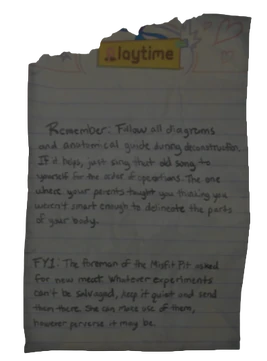 Playtime
Remember: Follow all diagrams
and anatomical guide during deconstruction.
If it helps, just sing that old song to
yourself for the order of operations. The one
where your parents taught you thinking you
weren't smart enough to delineate the parts
of your body.
FYI: The foreman of the Misfit Pit asked
for new meat. Whatever experiments
can't be salvaged, keep it quiet and send
them there. She can make use of them,
however perverse it may be.